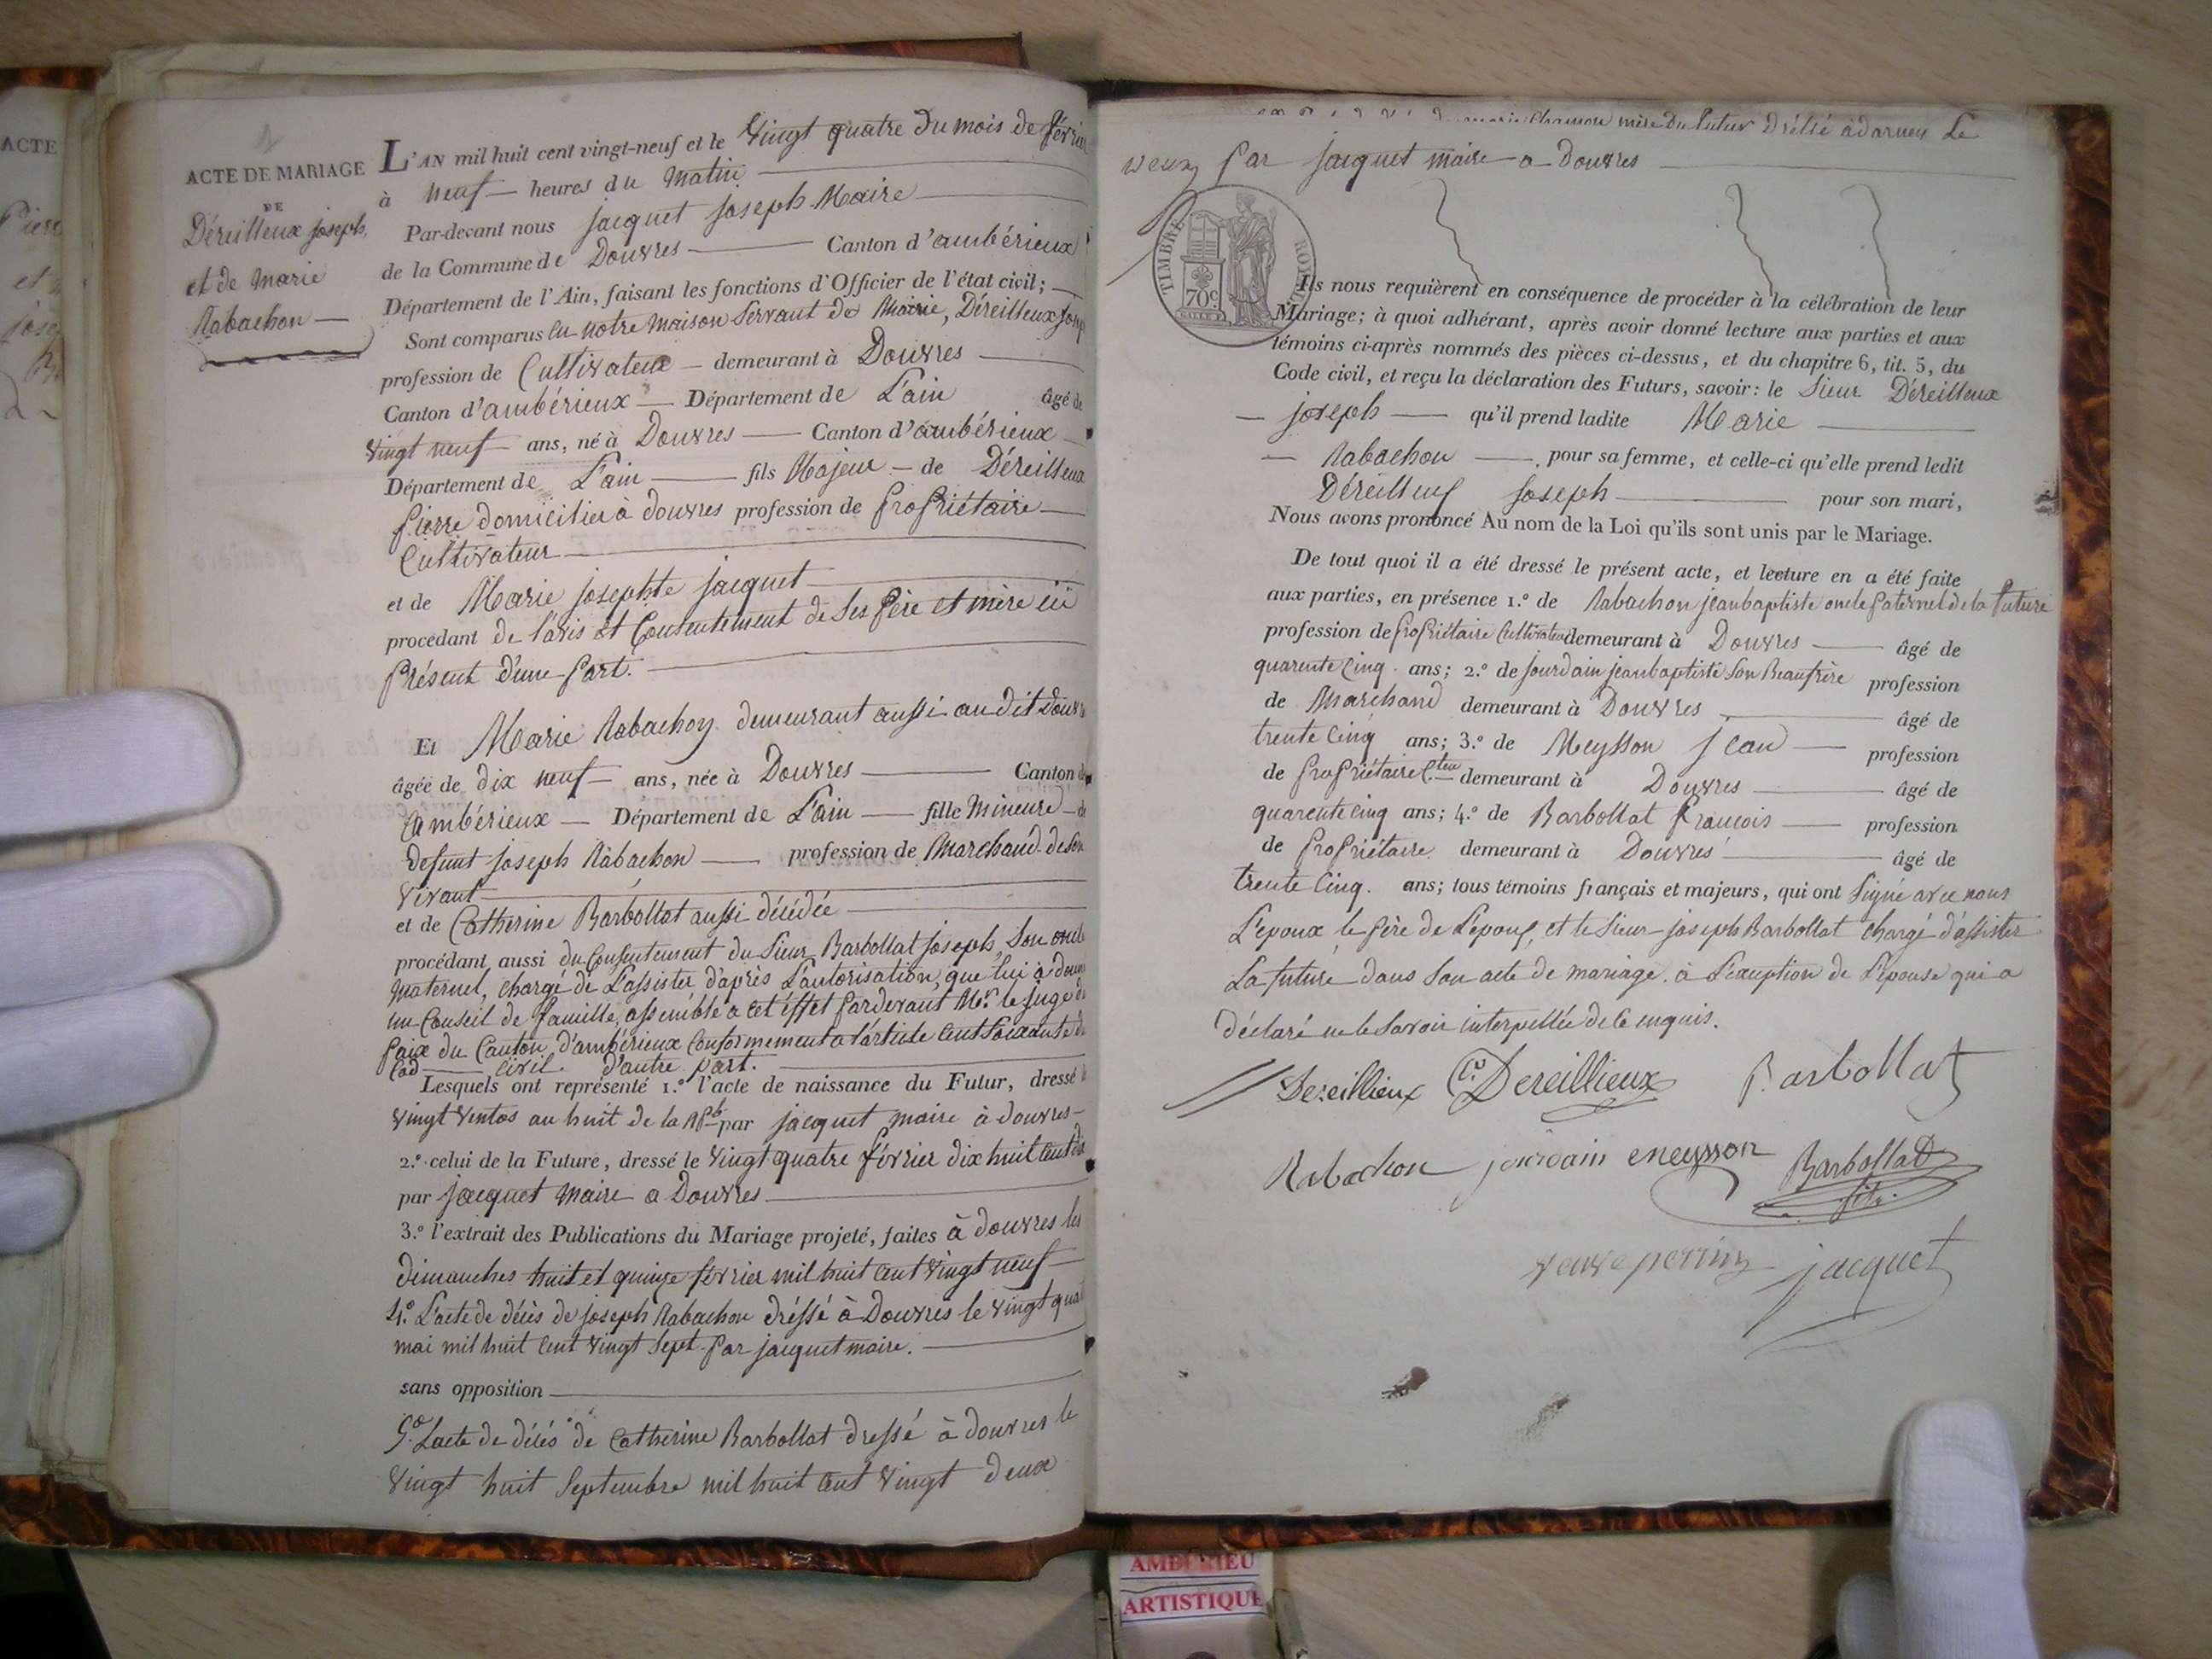 ACTE
ACTE DE MARIAGE
DE
Déreilleux joseph,
et de Marie
Rabachon
L'AN mil huit cent vingt-neuf et le Vingt quatre du mois de février
à neuf heures du Matin
Par-devant nous jacquet joseph Maire
de la Commune de Douvres Canton d'ambérieux
Département de l'Ain, faisant les fonctions d'Officier de l'état civil;
Sont comparus en notre maison Servant de Mairie, Déreilleux josep
profession de Cultivateur demeurant à Douvres
Canton d'ambérieux Département de L'ain âgé de
Vingt neuf ans, né à Douvres Canton d'ambérieux
Département de L'ain fils Majeur de Déreilleux
pierre domicilié à douvres profession de propriétaire
Cultivateur
et de Marie josephte jacquet
procédant de l'avis et Consentement de Ses père et mère ici
présent d'une part.
Et Marie Rabachon demeurant aussi au dit Douvres
âgée de dix neuf ans, née à Douvres Canton d
ambérieux Département de L'ain fille Mineure de
defunt joseph Rabachon profession de Marchand de son
vivant
et de Catherine Barbollat aussi décédée
procédant aussi du Consentement du Sieur Barbollat joseph, Son oncle
maternel, chargé de L'assister d'après L'autorisation, que lui à donné
un Conseil de famille, assemblé a cet éffet pardevant Mr. le juge de
paix du Canton d'ambérieux Conformement a l'article Cent soixante du
Cod civil. d'autre part.
Lesquels ont représenté 1.º l'acte de naissance du Futur, dressé le
vingt ventos an huit de la Rpb par jacquet maire à douvres
2.º celui de la Future, dressé le vingt quatre février dix huit cent dix
par jacquet maire a Douvres
3.º l'extrait des Publications du Mariage projeté, faites à douvres les
dimanches huit et quinze février mil huit cent vingt neuf
4.º L'acte de décès de joseph Rabachon dréssé à Douvres le vingt quat
mai mil huit cent vingt sept par jacquet maire.
sans opposition
5º. L'acte de décès de Catherine Barbollat dressé à douvres le
vingt huit Septembre mil huit cent vingt deux
par jacquet maire a Douvres
TIMBRE ROYAL
70c
Ils nous requièrent en conséquence de procéder à la célébration de leur
Mariage; à quoi adhérant, après avoir donné lecture aux parties et aux
témoins ci-après nommés des pièces ci-dessus, et du chapitre 6, tit. 5, du
Code civil, et reçu la déclaration des Futurs, savoir: le Sieur Déreilleux
joseph qu'il prend ladite Marie
Rabachon pour sa femme, et celle-ci qu'elle prend ledit
Déreilleux Joseph pour son mari,
Nous avons prononcé Au nom de la Loi qu'ils sont unis par le Mariage.
De tout quoi il a été dressé le présent acte, et lecture en a été faite
aux parties, en présence 1.º de Rabachon jean baptiste oncle paternel de la future
profession de propriétaire Cultivateur demeurant à Douvres âgé de
quarente Cinq ans; 2.º de jourdain jean baptiste Son Beaufrère profession
de Marchand demeurant à Douvres âgé de
trente Cinq ans; 3.º de Meysson jean profession
de propriétaire Cteur demeurant à Douvres âgé de
quarente cinq ans; 4.º de Barbollat françois profession
de propriétaire demeurant à Douvres âgé de
trente Cinq. ans; tous témoins français et majeurs, qui ont Signé avec nous
L'epoux le père de L'époux, et le Sieur joseph Barbollat chargé d'assister
La future dans Son acte de mariage. à L'éxeuption de L'épouse qui a
déclaré ne le Savoir interpellée de Ce enquis.
Dereillieux Dereillieux Barbollat
Rabachon jourdain meysson Barbollat
fils
veuve perrin jacquet
AMBERIEU
ARTISTIQUE